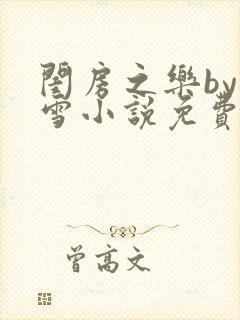 閨房之樂by
雪小說免費
曾高文